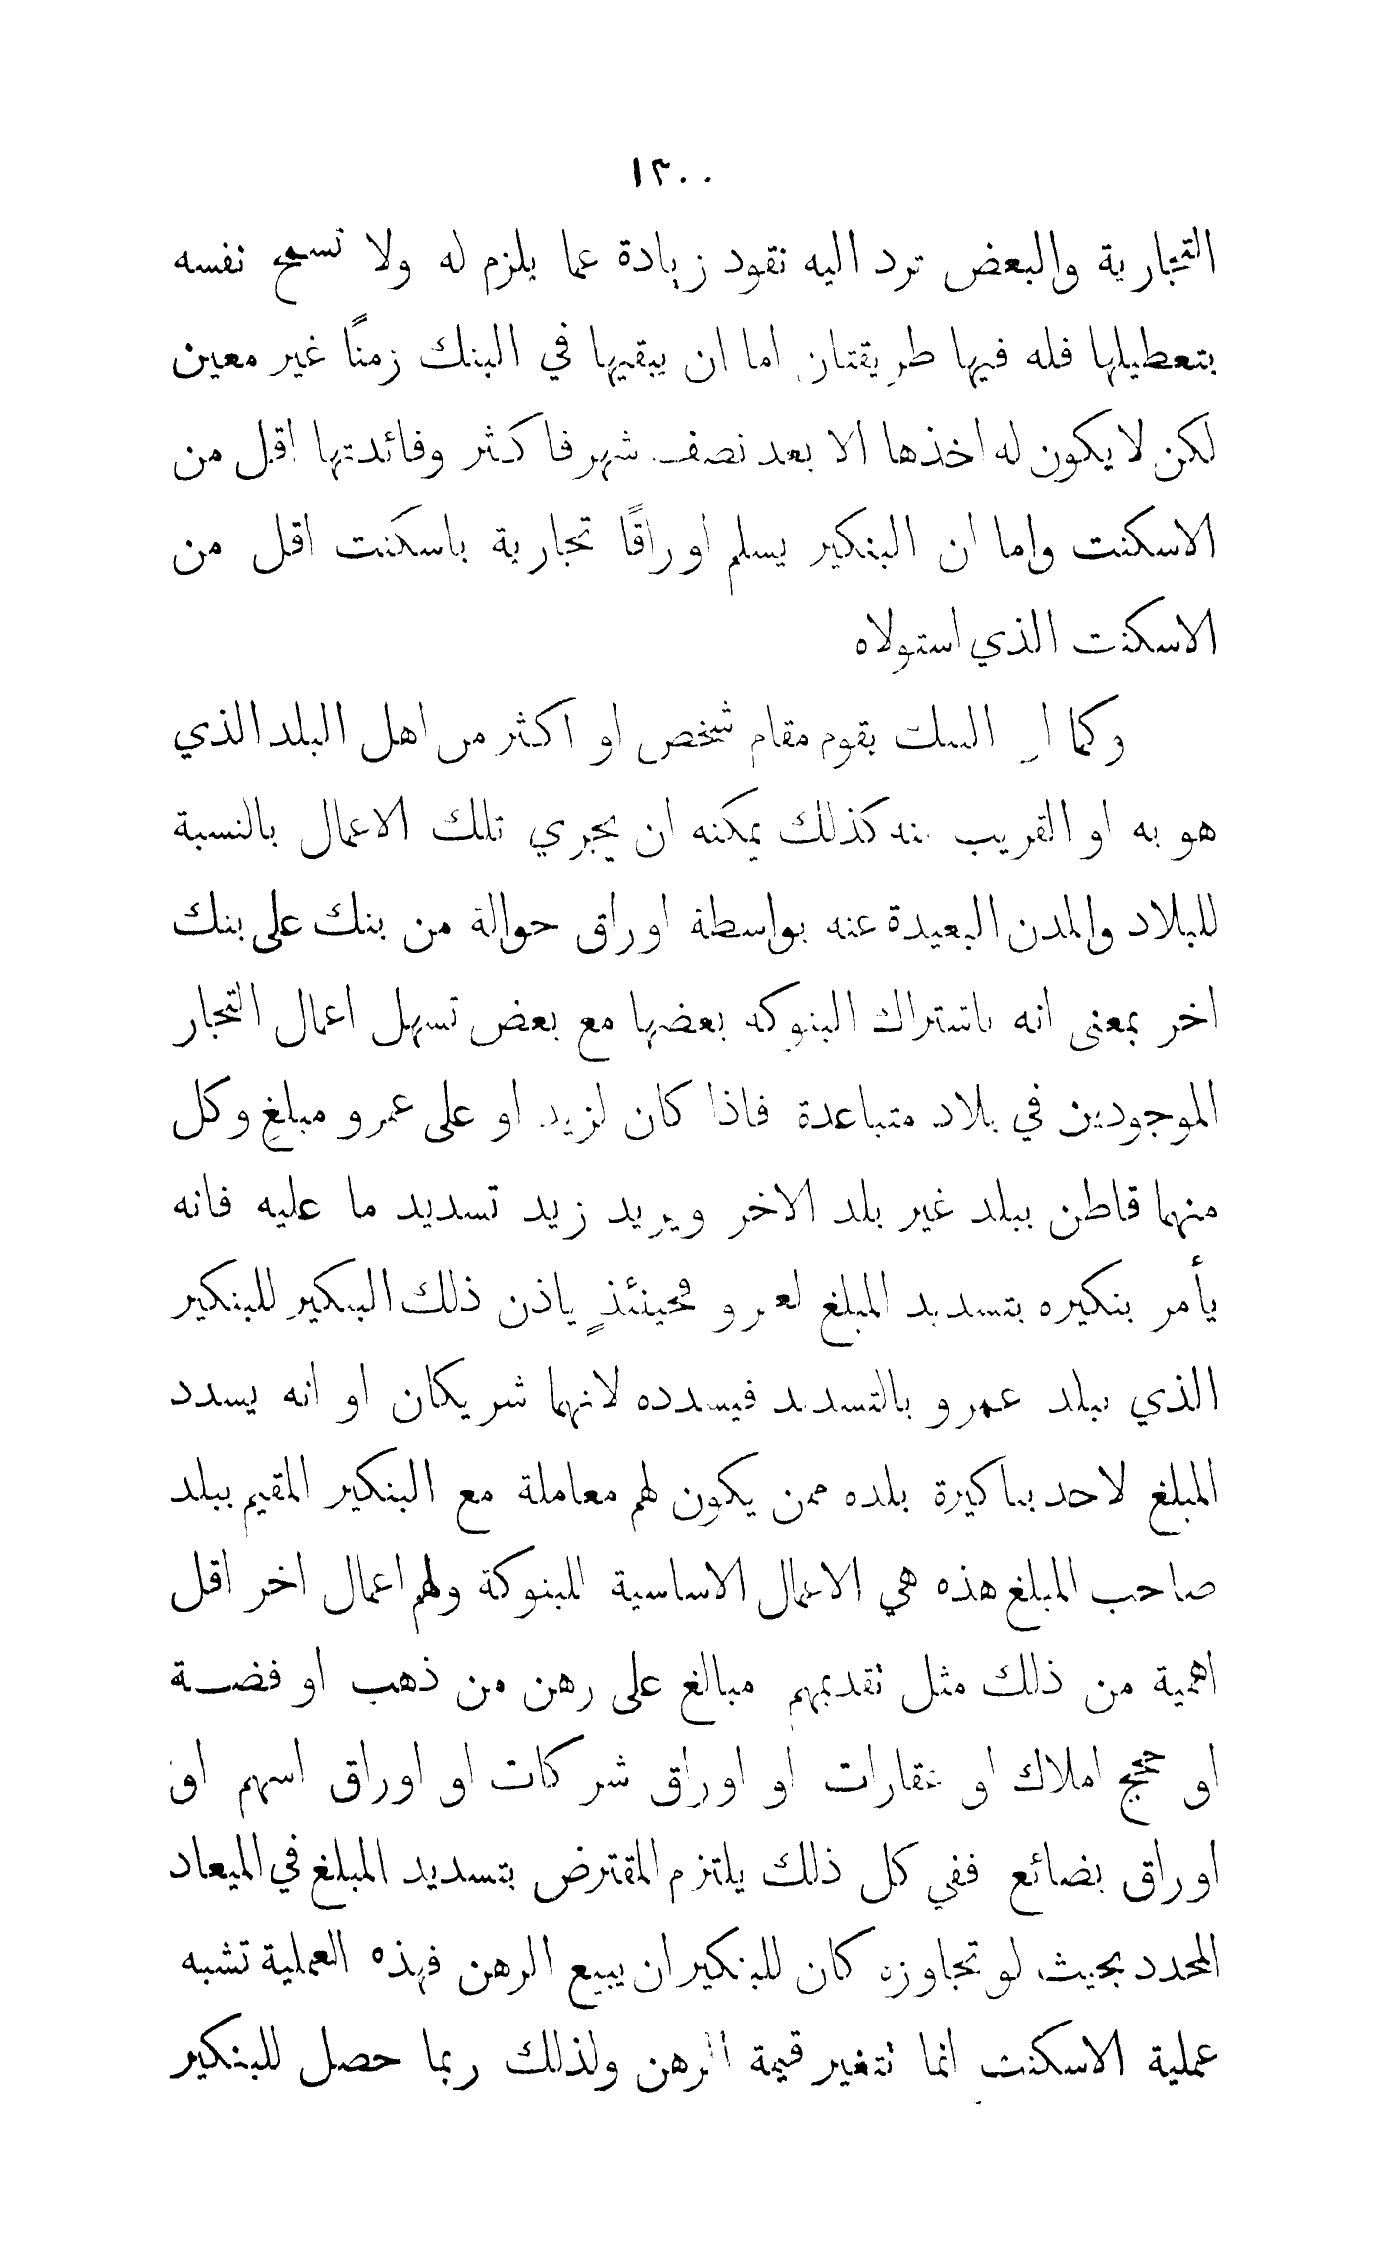 ١٣٠٠
التجارية والبعض ترد اليه نقود زيادة عما يلزم له ولا تسمح نفسه
بتعطيلها فله فيها طريقتان اما ان يبقيها في البنك زمنًا غير معين
لكن لا يكون له اخذها الا بعد نصف شهر فاكثر وفائدتها اقل من
الاسكنت واما ان البنكير يسلم اوراقًا تجارية باسكنت اقل من
الاسكنت الذي استولاه
وكما ان البنك يقوم مقام شخص او اكثر من اهل البلد الذي
هو به او القريب منه كذلك يمكنه ان يجري تلك الاعمال بالنسبة
للبلاد والمدن البعيدة عنه بواسطة اوراق حوالة من بنك على بنك
اخر بمعنى انه باشتراك البنوكه بعضها مع بعض تسهل اعمال التجار
الموجودين في بلاد متباعدة فاذا كان لزيد او على عمرو مبلغ وكل
منهما قاطن ببلد غير بلد الاخر ويريد زيد تسديد ما عليه فانه
يأمر بنكيره بتسديد المبلغ لعمرو فحينئذٍ ياذن ذلك البنكير للبنكير
الذي ببلد عمرو بالتسديد فيسدده لانهما شريكان او انه يسدد
المبلغ لاحد بناكيرة بلده ممن يكون لهم معاملة مع البنكير المقيم ببلد
صاحب المبلغ هذه هي الاعمال الاساسية للبنوكة ولهم اعمال اخر اقل
اهمية من ذلك مثل تقديمهم مبالغ على رهن من ذهب او فضة
او حجج املاك او عقارات او اوراق شركات او اوراق اسهم او
اوراق بضائع ففي كل ذلك يلتزم المقترض بتسديد المبلغ في الميعاد
المحدد بحيث لو تجاوزه كان للبنكير ان يبيع الرهن فهذه العملية تشبه
عملية الاسكنت انما تتغير قيمة الرهن ولذلك ربما حصل للبنكير